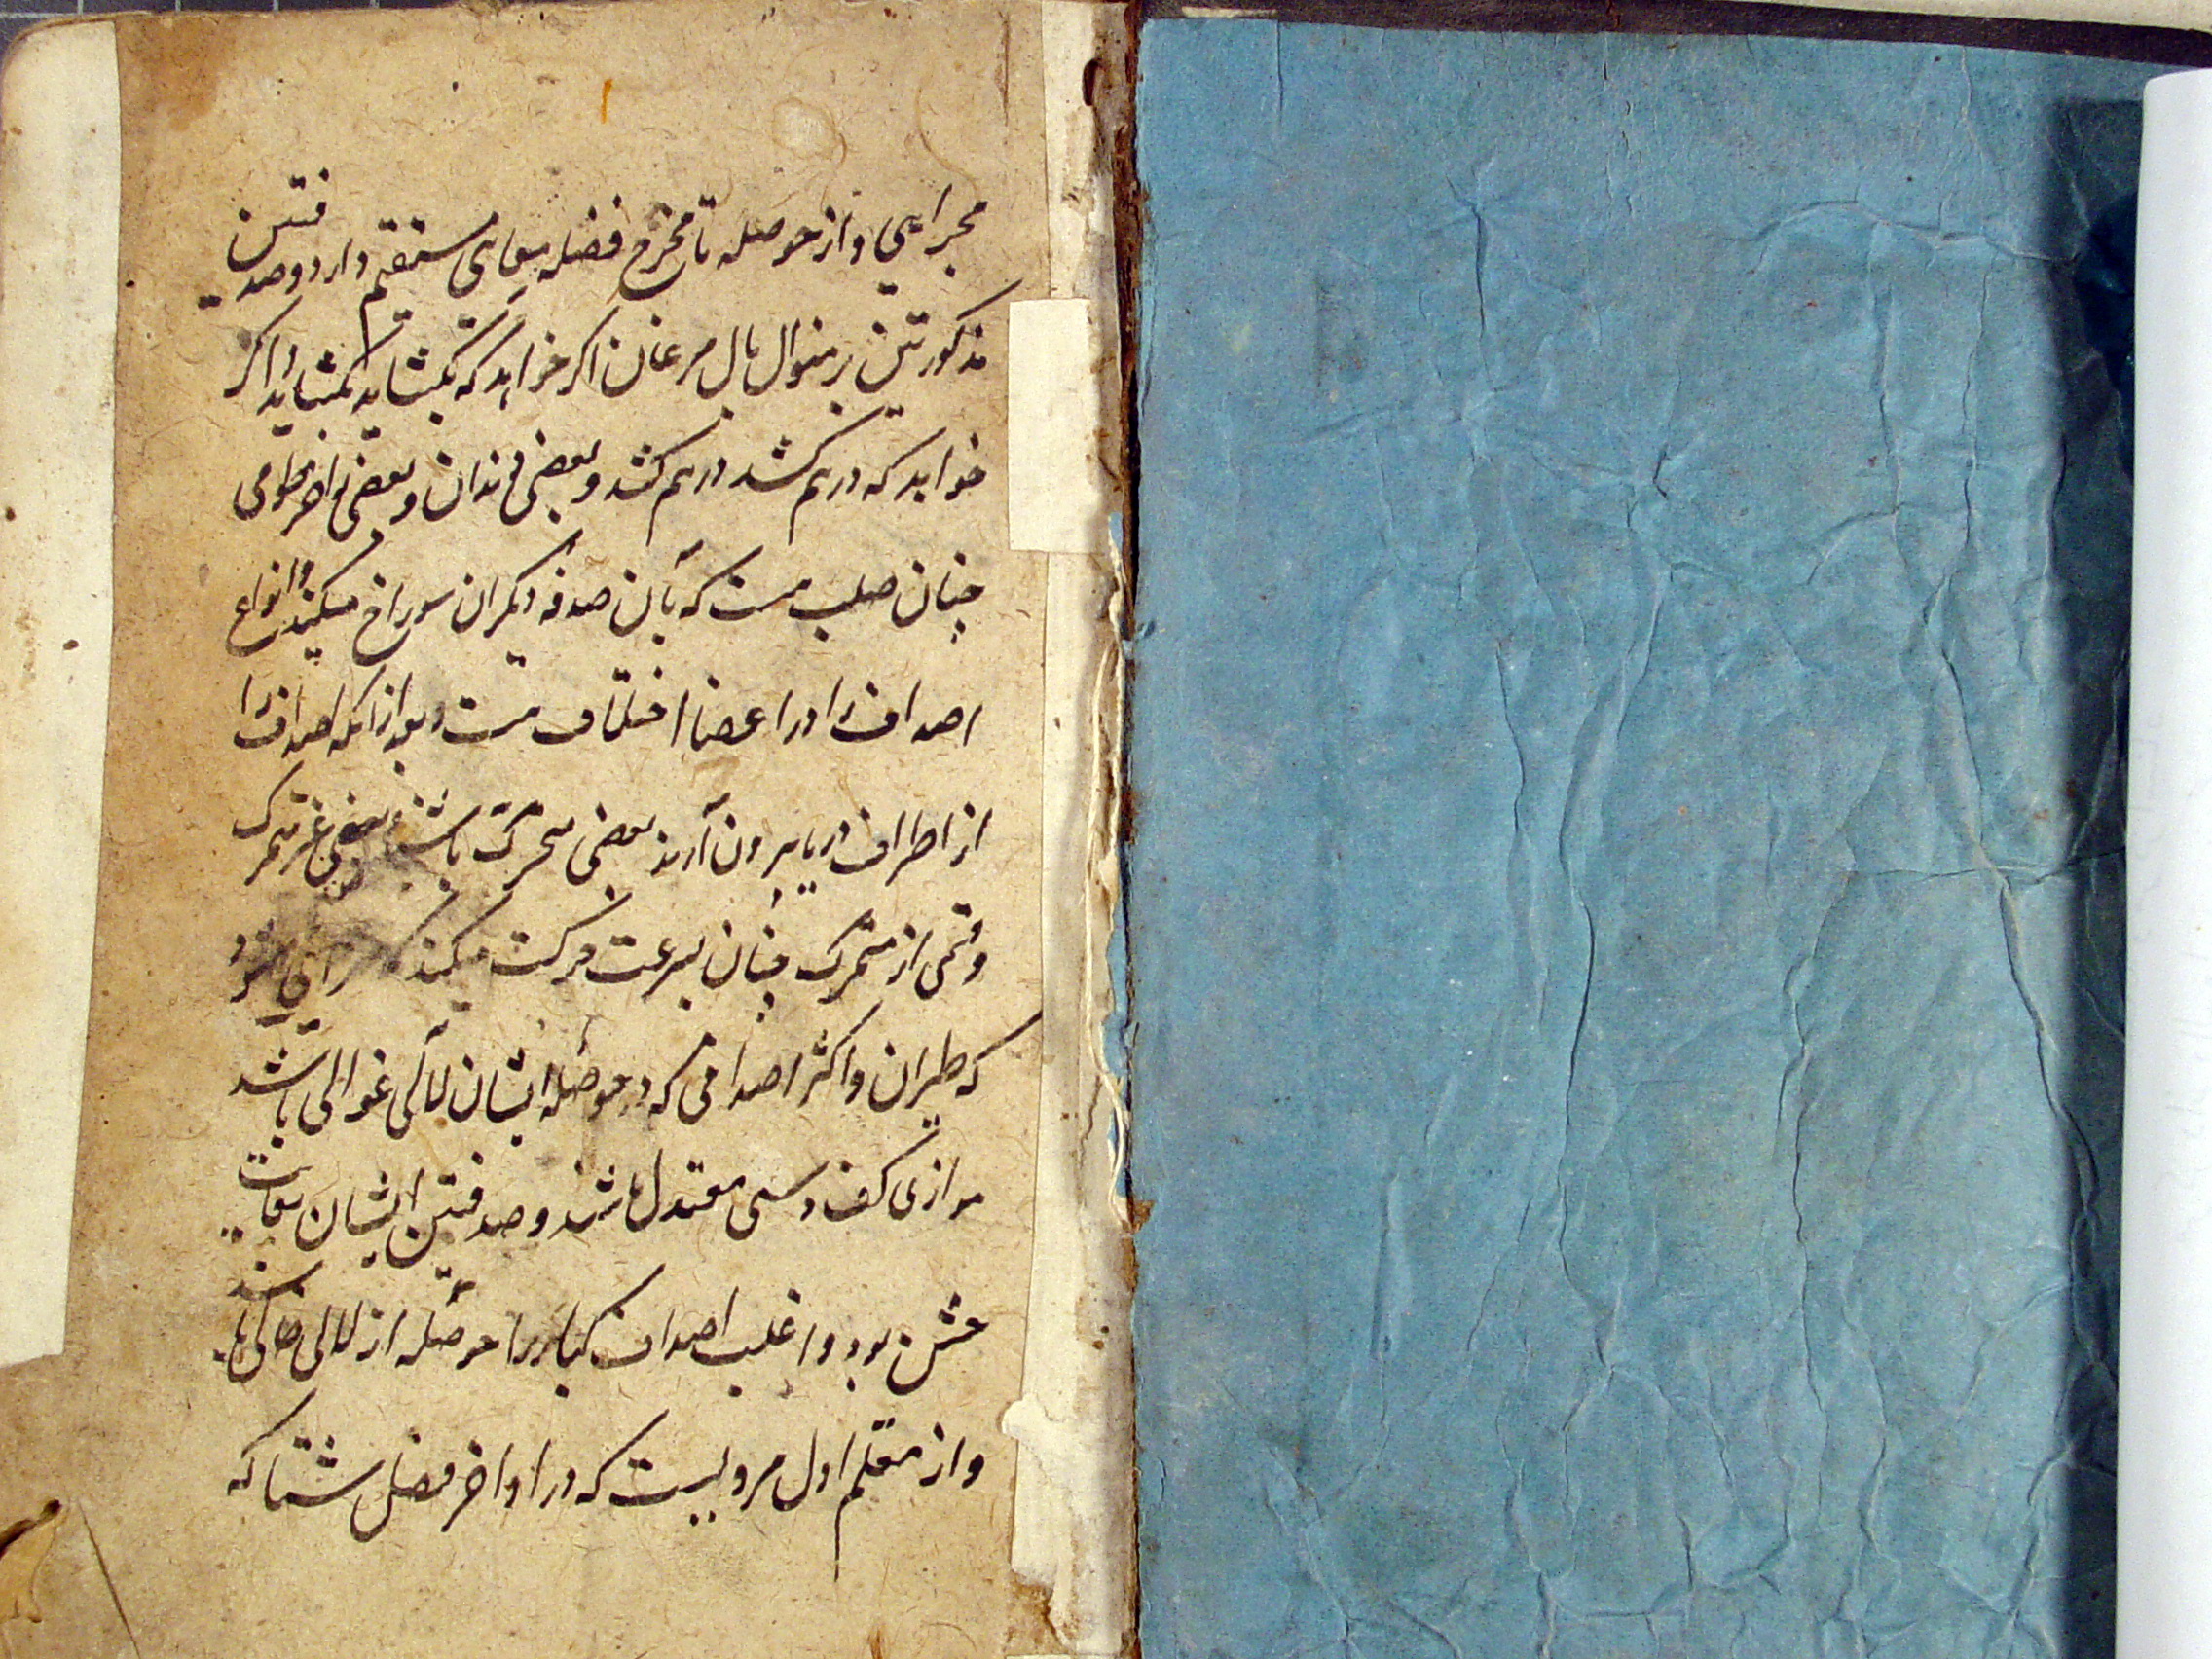 مجرایی و از حوصله تا مخرج فضله معای مستقیم دارد و صدفتین
مذکورتین بر منوال بال مرغان اگر خواهد که بگشاید بگشاید و اگر
خواهد که درهم کشد درهم کشد و بعضی دندان و بعضی را خرطومی
چنان صلب هست که بآن صدفه دیگران سوراخ میکنند و انواع
اصداف را در اعضا اختلاف هست و بعد از آنکه اصداف را
از اطراف دریا بیرون آرند بعضی متحرک باشند و بعضی غیر متحرک
و قسمی از متحرک چنان بسرعت حرکت میکند
که طیران و اکثر اصدافی که در حوصله ایشان لآلی غوالی باشد
موازی کف دستی معتدل باشند و صدفتین ایشان بغایت
خشن بود و اغلب اصداف کبار را حوصله از لآلی خالی باشند
و از معلم اول مرویست که در اواخر فصل شتا که